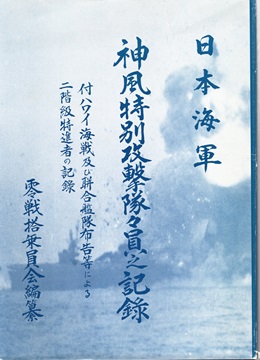 日本海軍
神風特別攻撃隊々員之記録
付ハワイ海戦及び聯合艦隊布告等による
二階級特進者の記録
零戦搭乗員会編纂